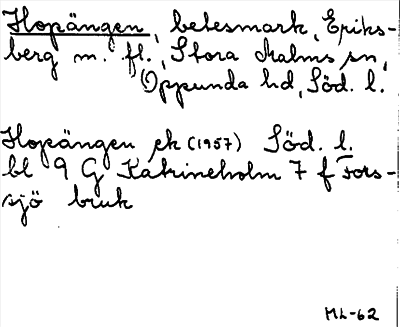 Hopängen, betesmark, Eriks-
berg m. fl., Stora Malms sn,
Oppunda hd, Söd. l.
Hopängen ek (1957) Söd. l.
bl 9 G Katrineholm 7 f Fors-
sjö bruk
ML-62